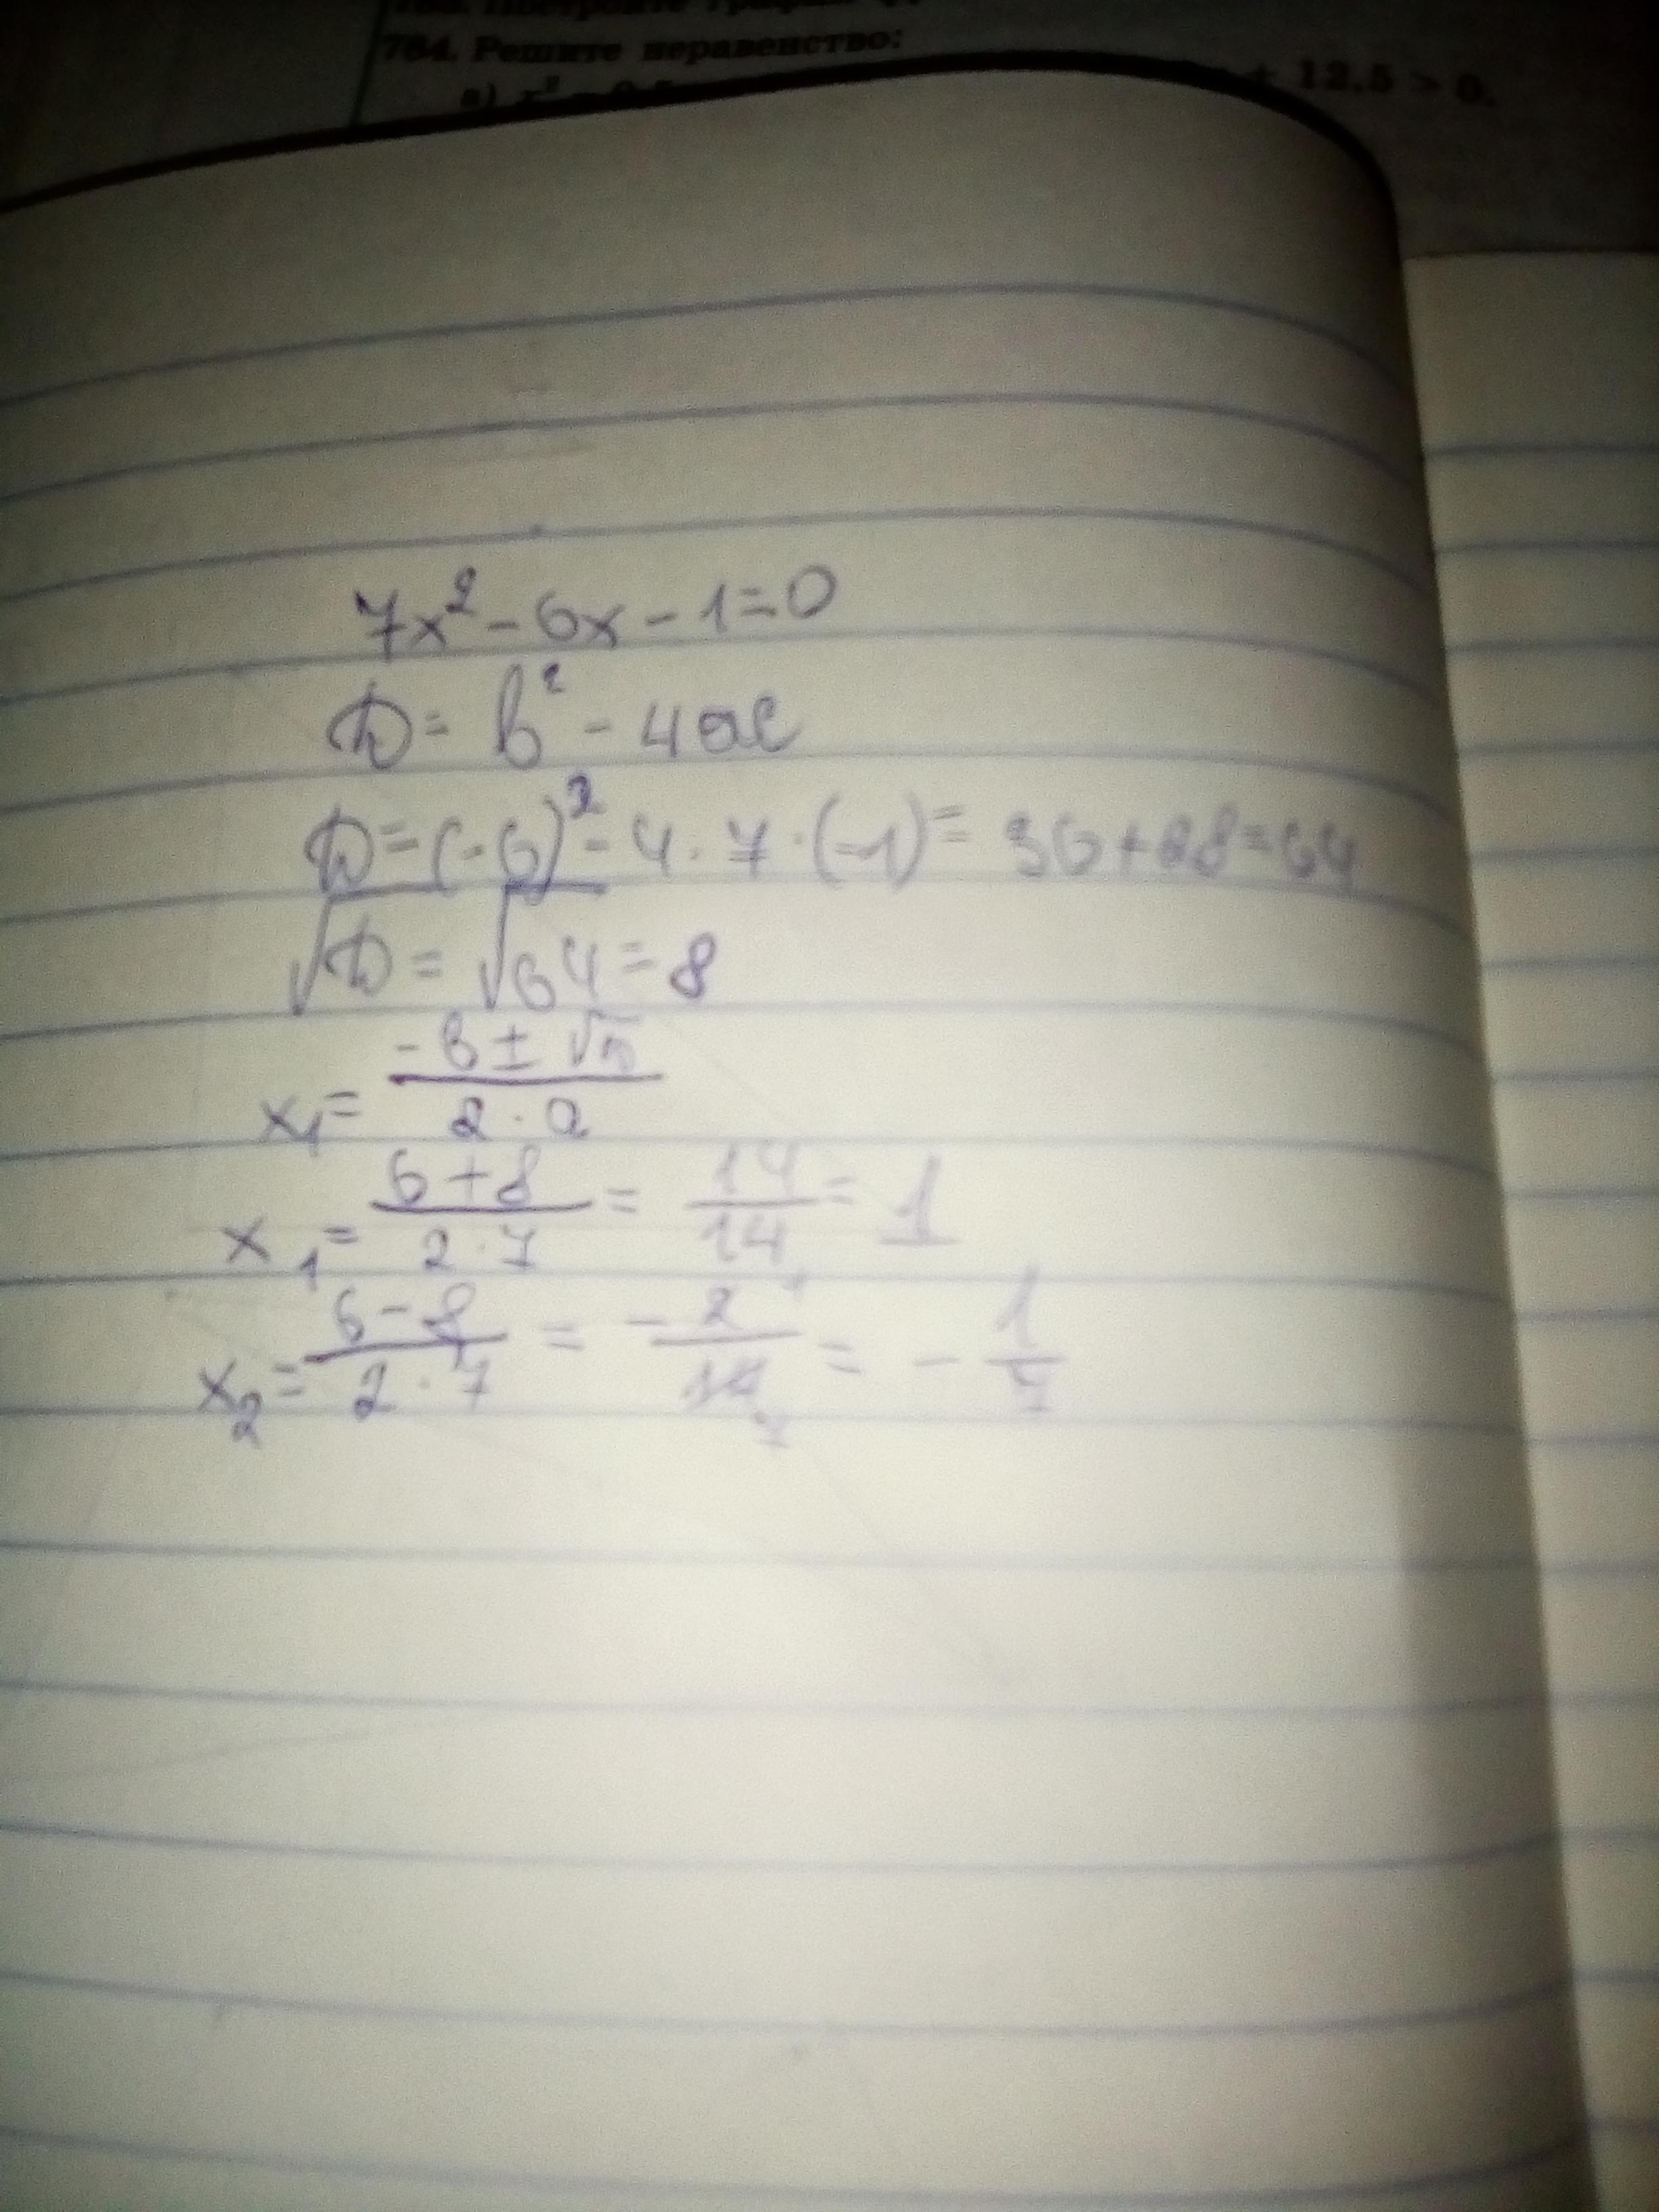 784. Решите неравенство:
+ 12,5 > 0.
7x² - 6x - 1 = 0
D = b² - 4ac
D = (-6)² - 4 · 7 · (-1) = 36 + 28 = 64
√D = √64 = 8
x₁ = (-b ± √D) / (2 · a)
x₁ = (6 + 8) / (2 · 7) = 14/14 = 1
x₂ = (6 - 8) / (2 · 7) = -2/14 = -1/7